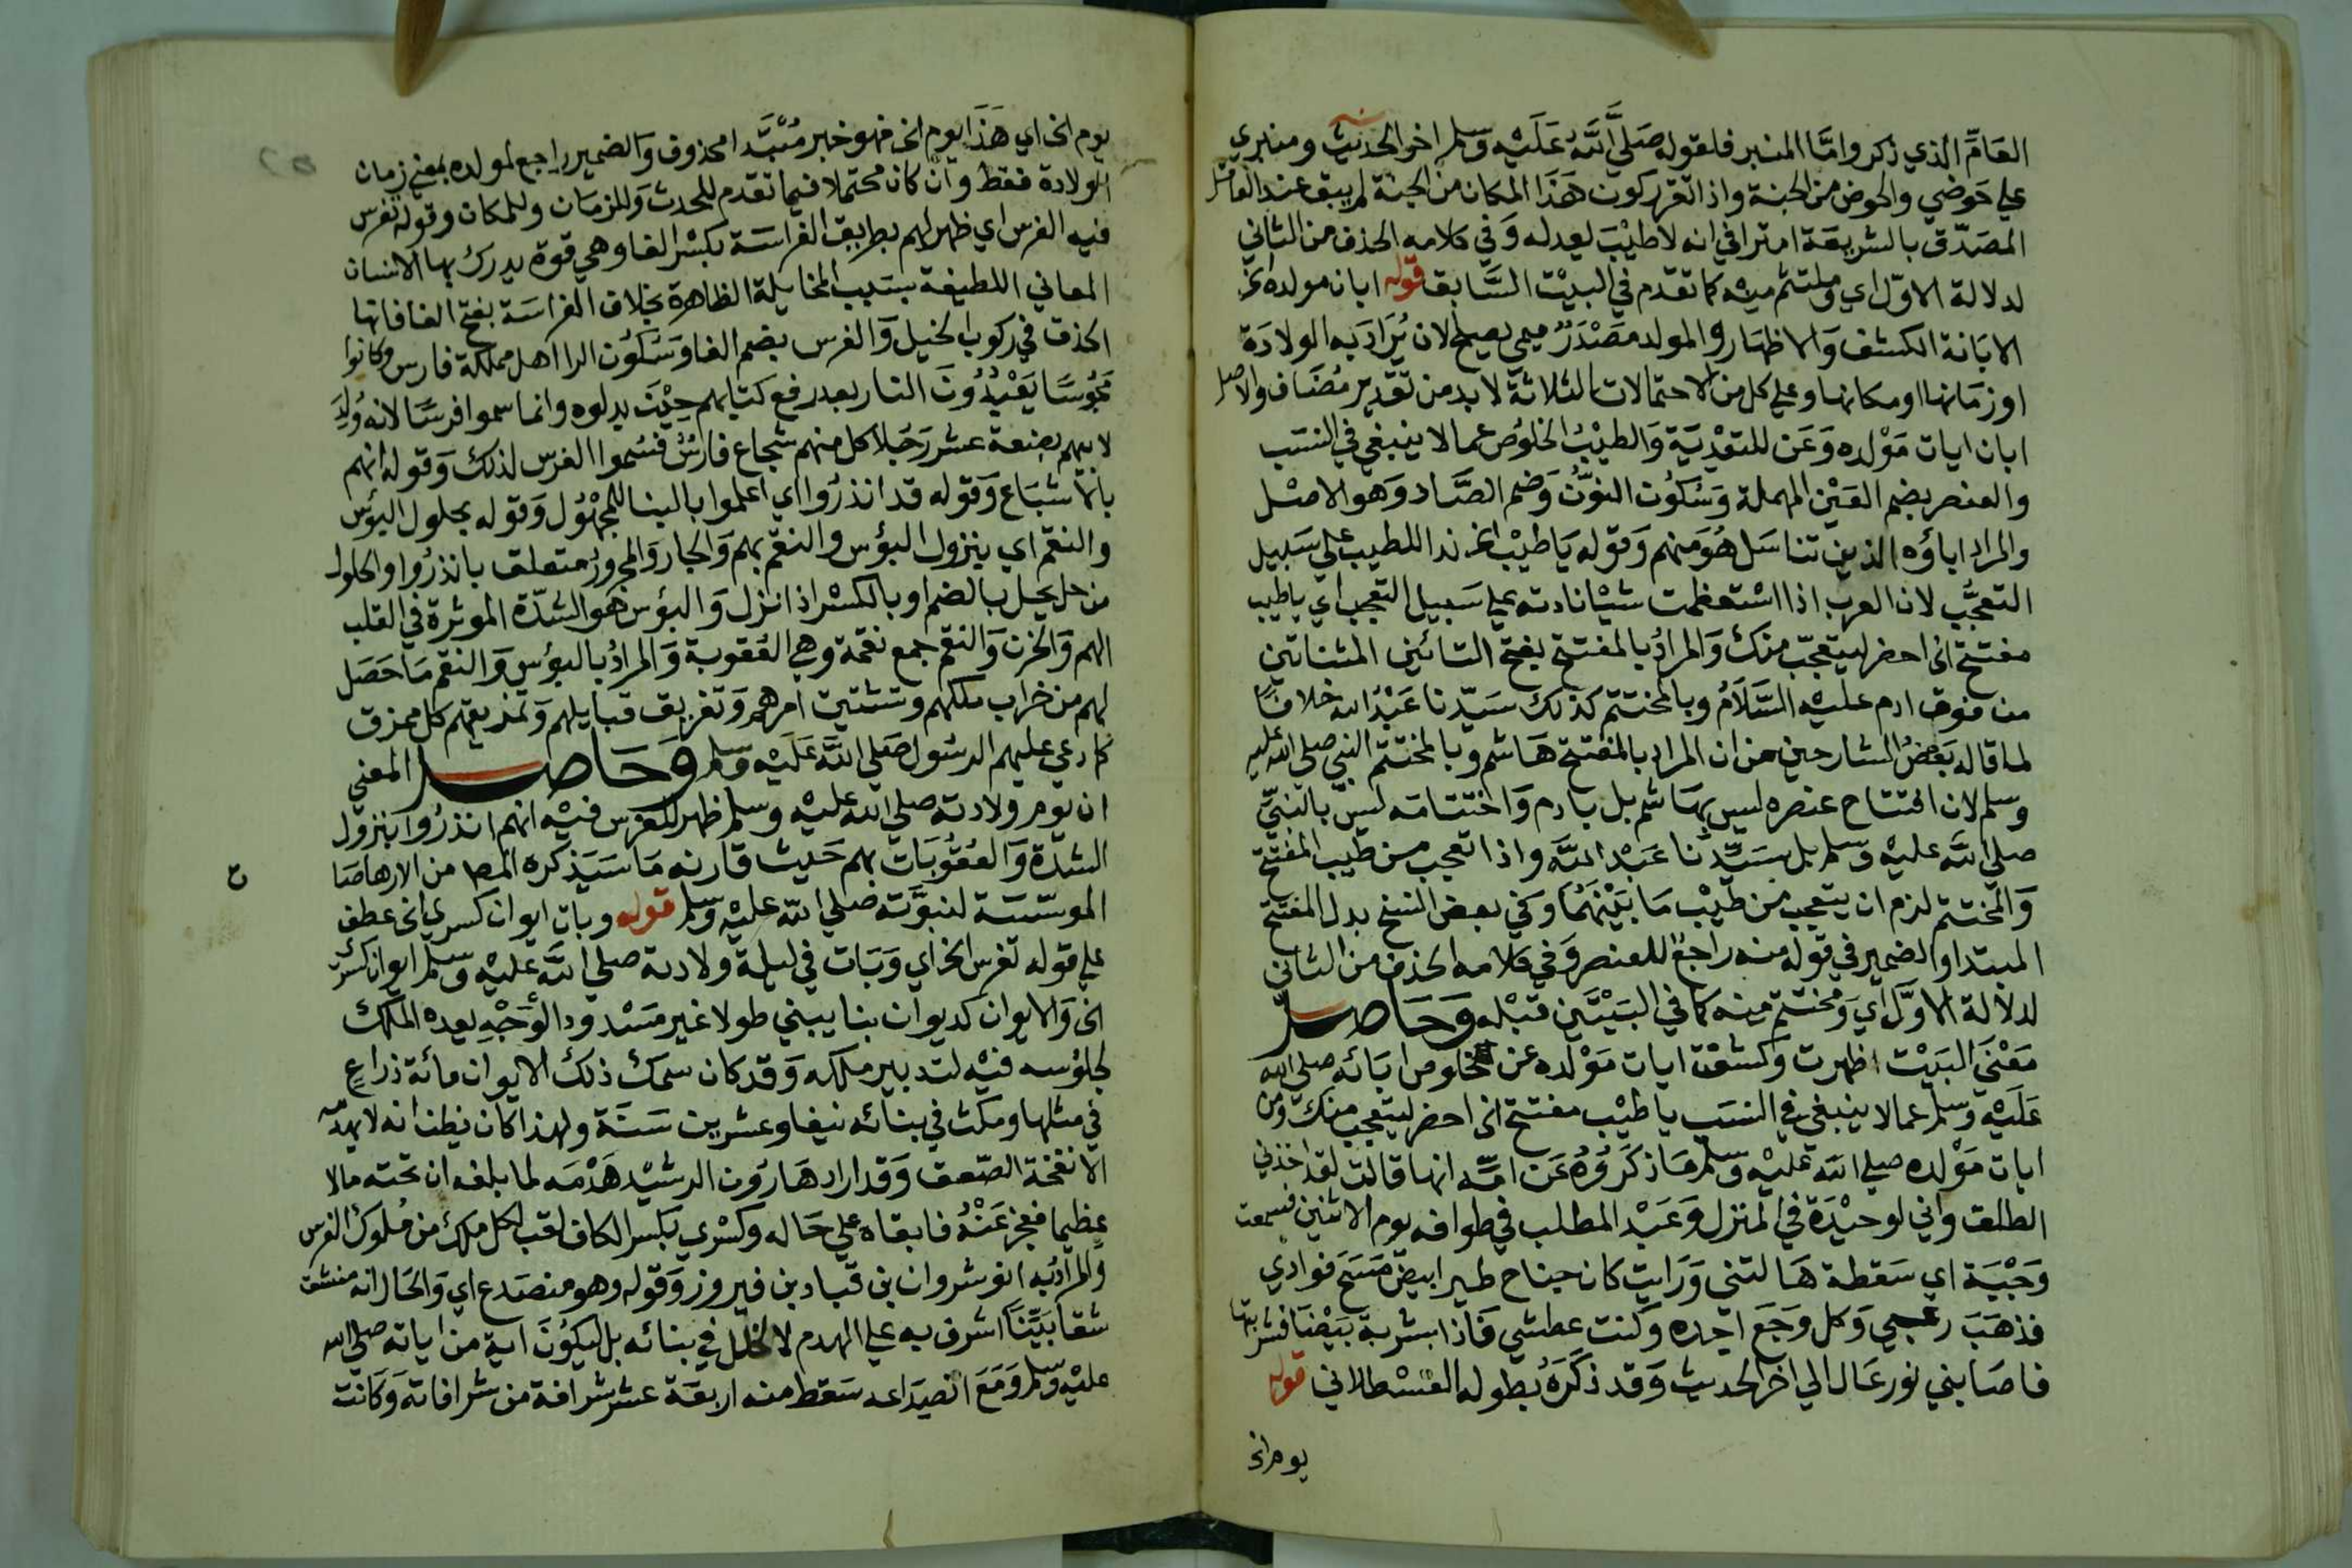 العَامّ الذي ذكر وامَّا المنبر فلقوله صَلَّي اللَّهُ عَلَيْه وَسلم اخر الحَديث ومنبري
علي حَوضي والحوض من الجنة واذا تقرر كون هَذَا المكان من الجنة لم يبق عند العَاقل
المصَدّق بالشريعَة امترا في انه لا طيْبَ يعدله وَفي كلامه الحذف من الثاني
لدلالة الاوّل اي وَملتثم منه كما تقدم في البيْت السَّابق قوله ابان مولده الخ
الابَانة الكشف وَالاظهار والمولد مصْدَرٌ ميمي يصلح لان يُرَادَ به الولادَة
او زمَانها او مكانها وعلي كل من الاحتمالات الثلاثة لابد من تقدير مُضَاف والاصل
ابان ايات مَوْلده وَعَن للتعْديَة وَالطيْبُ الخلوُص عما لا ينبغي في النسَب
والعنصر بضم العَيْن المهملة وَسُكوُن النوُّن وَضم الصَّاد وَهو الاصْل
والمراد اباؤه الذين تناسَل هُوَ منهم وَقوله يَا طيْب الخ ندا للطيب علي سَبيل
التعجُّب لان العرب اذا اسْتعظمت شيْا نادته علي سَبيل التعجب اي يا طيب
مفتتح الخ احضر ليتعجّب منك وَالمرادُ بالمفتتح بفتح التائين المثناتين
من فوق ادم عليْه السَّلَامُ وبالمختتم كذلك سَيّدنا عَبْدُ الله خلافًا
لما قاله بَعضُ الشارحين من ان المراد بالمفتتح هَاشم وبالمختتم النبي صلي الله عليه
وسلم لان افتتاح عنصره ليس بهَاشم بل بادم وَاختتامَه ليسَ بالنبيّ
صلي اللَّه عليْه وَسلم بل بسَيّدنا عَبْد اللَّه واذا تعجب من طيب المفتتح
وَالمختتم لزم ان يتعجب من طيْب مَا بَيْنَهُمَا وَفي بعض النسخ بدل المفتتح
المبتدا والضمير في قوله منه راجعٌ للعنصر وَفي كلامه الحذف من الثاني
لدلالة الاوَّل اي وَمختتم منه كما في البَيْتَين قبْله وَحَاصل
مَعْنَي البَيْت اظهرت وَكشفت ايات مَوْلده عن خلوص ابَائه صلي الله
عَلَيْه وَسلم عما لا ينبغي في النسَب يا طيْب مفتتح الخ احضر ليتعجب منك وَمن
ايات مَوْلده صلي اللَّه عليْه وَسلم مَا ذكَرُوُهُ عَن امّه انها قالت لقد اخذني
الطلق واني لوحيْدَة في المنزل وَعَبْد المطلب في طوافه يوم الاثنين فسمعت
وَجْبَة اي سَقطة هَالتني وَرَايت كان جناح طير ابيض مَسَحَ فوادي
فذهَبَ رعبي وَكل وَجَع اجده وَكنت عطشي فَاذا بشربة بَيْضَا فشربتها
فاصَابني نور عَال الي اخر الحديث وَقد ذكَرَهُ بطوله القسْطلاني قوله
يوم الخ
يوم الخ اي هَذَا يوم الخ فهو خبر مُبْتَدا محذوف وَالضمير راجع لمولده بمعني زمان
الولادة فقط وَان كان محتملا فيما تقدم للحدث وَللزمَان وللمكان وقوله تفرس
فيه الفرس اي ظهر لهم بطريق الفراسَة بكسْر الفا وهي قوة يدرك بها الانسان
المعاني اللطيفة بسَبب المخايلة الظاهرة بخلاف الفراسَة بفتح الفا فانها
الحذق في ركوب الخيل وَالفرس بضم الفا وَسُكوُن الرا اهل مملكة فارس وكانوا
مجُوسًا يَعْبُدُونَ النار بعد رفع كتابهم حِيْنَ بدلوه وانما سموا فرسًا لانه وُلِدَ
لابيهم بضعة عشر رَجُلا كل منهم شجاع فارسٌ فسُموا الفرس لذلك وَقوله انهم
بالاشبَاع وَقوله قد انذرُوا اي اعلموا بالبنا للمجْهوُل وَقوله بحلول البؤس
والنقم اي بنزول البؤس والنقم بهم وَالجار وَالمجرور متعلق بانذرُوا والحلول
من حل يحل بالضم او بالكسْر اذا نزل وَالبؤس هو الشدّة الموثرة في القلب
الهم وَالحزن وَالنقم جمع نقمة وهي العُقوبة وَالمرادُ بالبؤس وَالنقم مَا حَصَل
لهم من خراب ملكهم وَتشتيت امرهم وَتفريق قبايلهم وَتمزيقهم كل ممزق
كما دعي عليهم الرسُول صَلي اللَّه عَلَيْه وَسلم وَحَاصل المعني
ان يوم ولادته صلي الله عليْه وسلم ظهر للفرس فيْه انهم انذرُوا بنزول
الشدّة وَالعقُوُبَات بهم حَيث قارنه مَا سَيَذكره المص من الارهاصَا
الموسّسَة لنبوَّته صلي اللَّه عليْه وَسلم قوله وبات ايوان كسري الخ عطف
علي قوله تفرس الخ اي وَبَات في ليلة ولادته صلي اللَّه عليْه وَسلم ايوان كسري
الخ وَالايوان كديوان بنا يبني طولا غير مَسْدود الوَجْهِ يعده الملك
لجلوُسه فيْه لتدبير ملكه وَقد كان سمك ذلك الايوان مائة ذراعٍ
في مثلها ومكث في بنائه نيفا وعشرين سَنَة ولهذا كان يظن انه لا يهدمه
الا نفخة الصّعق وَقد اراد هَارُون الرشيْد هَدْمَه لما بلغه ان تحته مالا
عظيما فعجز عَنْهُ فابقاه علي حَاله وكسْري بكسر الكاف لقب لكل ملك من مُلوك الفرس
وَالمرادُ به انوشروان بن قباد بن فيروز وَقوله وهو منصَدع اي وَالحَال انه منشق
شقا بَيّنًا اشرف به علي الهدم لا لخلل في بنائه بل ليكوُنَ اية من اياته صلي الله
عليْه وَسلم وَمَعَ انصدَاعه سَقط منه اربعَة عشر شرافة من شرافاته وَكانت